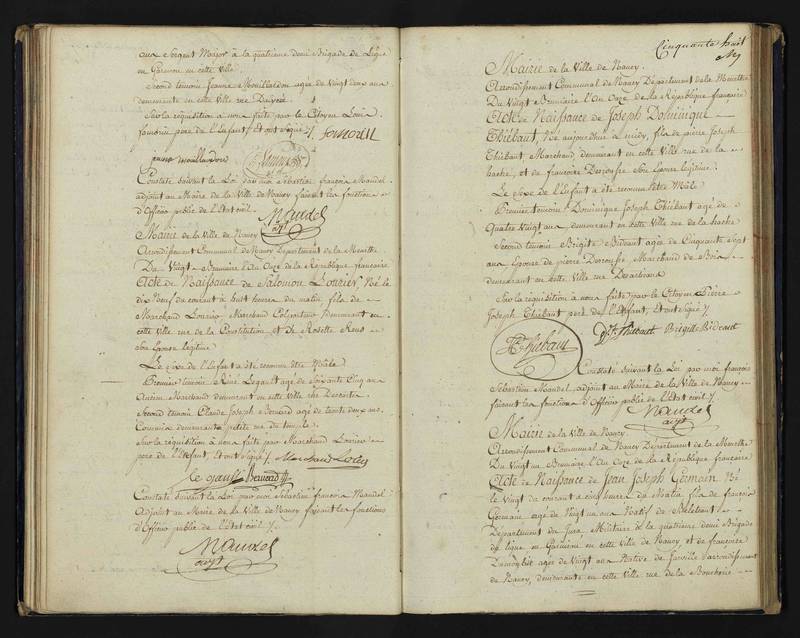 aux Sergent Major à la quatrieme demi Brigade de Ligne
en Garnison en cette Ville
Second temoin Jeanne Mouillardou agée de Vingt deux ans
demeurante en cette Ville rue
Sur la réquisition à nous faite par le Citoyen Louis
pere de l'Enfant, Et ont Signé ./.
Constaté Suivant la Loi par moi Sébastien françois Mandel
adjoint au Maire de la Ville de Nancy faisant les fonctions
d'Officier public de l'Etat civil ./.
Mandel
adjt
Mairie de la Ville de Nancy
Arrondissement Communal de Nancy Département de la Meurthe
Du Vingt Brumaire l'An Onze de la République française
Acte de Naissance de Salomon Lourier, Né le
dix Neuf du courant à huit heures du matin, fils de
Marchand Lourier, Marchand Colporteur demeurant en
cette ville rue de la Constitution, et de Rosette
Son Epouse légitime
Le Sexe de l'Enfant a été reconnu être Mâle
Premier temoin René Legault agé de Soixante Cinq ans
Ancien Marchand demeurant en cette ville rue Descartes
Second temoin Claude Joseph Bernard agé de trente deux ans
Commis demeurant petite rue du temple
Sur la réquisition à nous faite par Marchand Lourier
pere de l'Enfant, Et ont Signé ./.
Le gault Bernard
Constaté Suivant la Loi par moi Sébastien françois Mandel
Adjoint au Maire de la Ville de Nancy faisant les fonctions
d'Officier public de l'Etat civil ./.
Mandel
adjt
Cinquante huit
Mairie de la Ville de Nancy
Arrondissement Communal de Nancy Département de la Meurthe
Du Vingt Brumaire l'An Onze de la République française
Acte de Naissance de Joseph Dominique
Thiébaut, Né aujourd'hui à midy, fils de pierre Joseph
Thiébaut, Marchand demeurant en cette Ville rue de la
hache, et de françoise Derousse Son Epouse légitime
Le Sexe de l'Enfant a été reconnu être Mâle
Premier temoin Dominique Joseph Thiébaut agé de
Quatre Vingt ans, demeurant en cette Ville rue de la hache
Second temoin Brigite Bideaut agée de Cinquante Sept
ans Epouse de pierre Derousse Marchand de Bois
demeurant en cette Ville rue
Sur la réquisition à nous faite par le Citoyen Pierre
Joseph Thiébaut pere de l'Enfant, Et ont Signé ./.
Thiebaut
Thiebaut Brigitte Bideaut
Constaté Suivant la Loi par moi françois
Sébastien Mandel, adjoint au Maire de la Ville de Nancy
faisant les fonctions d'Officier public de l'Etat civil ./.
Mandel
adjt
Mairie de la Ville de Nancy
Arrondissement Communal de Nancy Département de la Meurthe
Du Vingt un Brumaire l'An Onze de la République française
Acte de Naissance de Jean Joseph Germain Né
le Vingt du courant à onze heures du Matin fils de françois
Germain agé de Vingt un ans Natif de
Département du Jura Militaire à la quatrieme demi Brigade
de ligne en Garnison en cette Ville de Nancy et de françoise
agée de Vingt ans Native de Jarville arrondissement
de Nancy, demeurante en cette Ville rue de la Boucherie